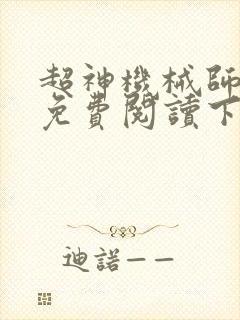 超神機械師
免費閱讀下
迪諾——